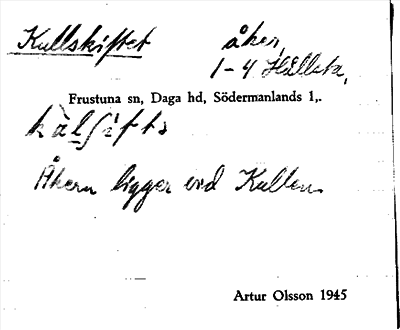 Kullskiftet åker,
1-4 Hållsta,
Frustuna sn, Daga hd, Södermanlands l,.
Åkern ligger vid Kullen.
Artur Olsson 1945